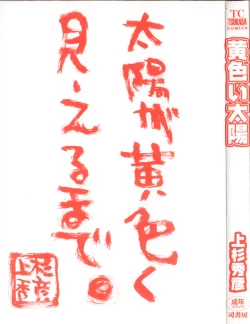 太陽が黄色く
見える まで。
上杉
秀彦
TC
TSUKASA
COMICS
黄色い太陽
上杉秀彦
成年
司書房